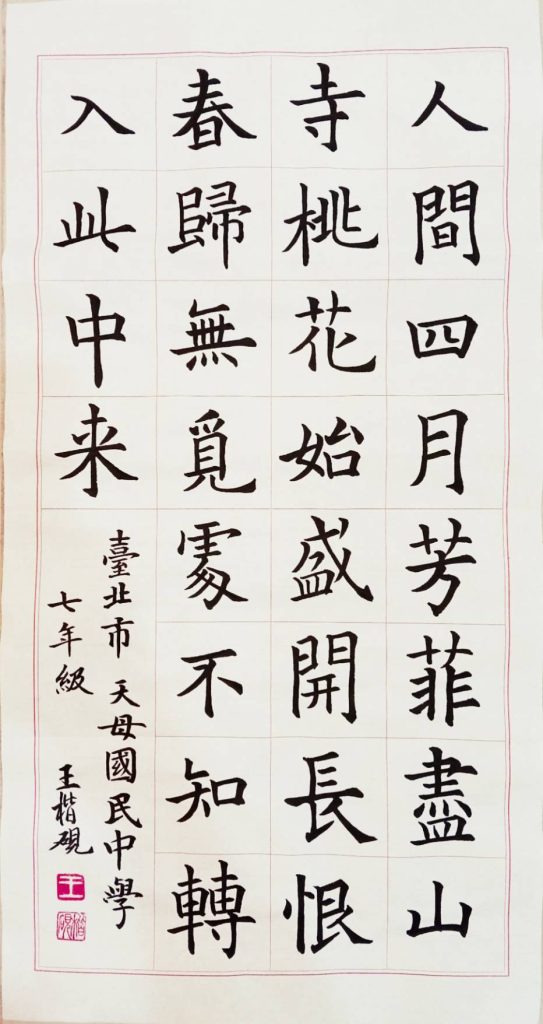 人間四月芳菲盡山
寺桃花始盛開長恨
春歸無覓處不知轉
入此中来
臺北市 天母國民中學
七年級 王楷硯
王
楷硯